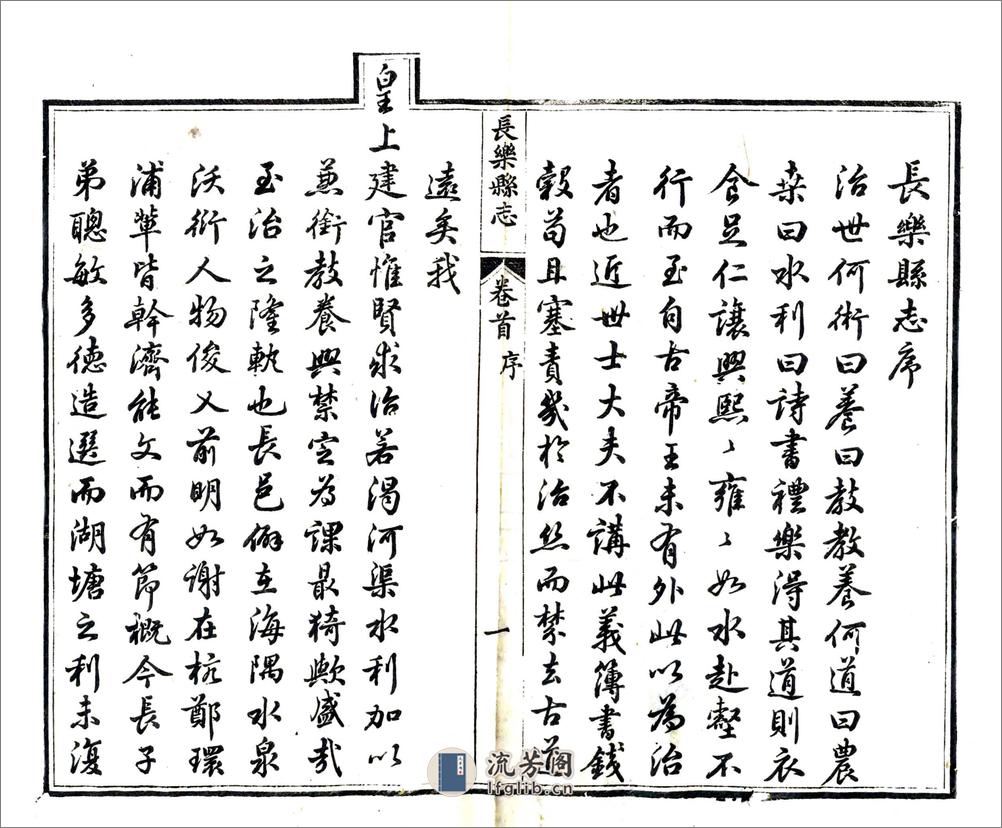 長樂縣志序
治世何術曰養曰教教養何道曰農
桑曰水利曰詩書禮樂得其道則衣
食足仁讓興熙〻雍〻如水赴壑不
行而至自古帝王未有外此以為治
者也近世士大夫不講此義簿書錢
穀苟且塞責幾於治絲而棼去古益
遠矣我
皇上建官惟賢求治若渴河渠水利加以
兼銜教養興禁定為課最猗歟盛哉
至治之隆軌也長邑僻在海隅水泉
沃衍人物俊乂前明如謝在杭鄭環
浦輩皆幹濟能文而有節概今長子
弟聰敏多德造選而湖塘之利未復
長樂縣志
卷首 序
一
流芳阁
lfglib.cn